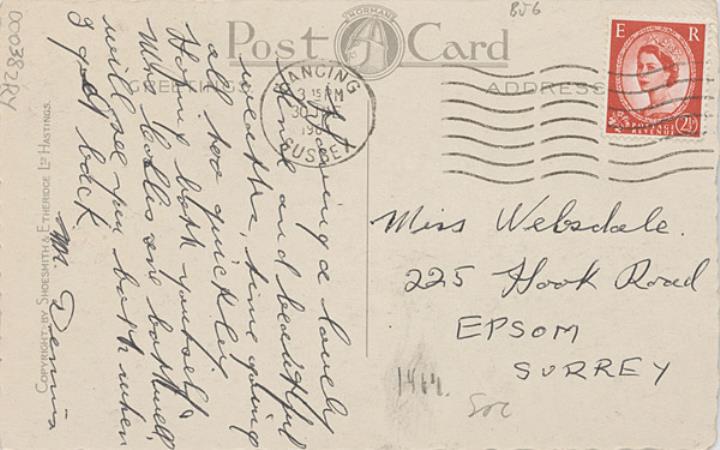 BJ6
Post Card
NORMAN
GREETINGS.
ADDRESS
E R
POSTAGE
REVENUE
2½D
LANCING
3 15 PM
30
196
SUSSEX
Having a lovely
time and beautiful
weather, time going
all too quickly
Hoping both yourself
Mrs are both well,
will see you both when
I get back
M. Dennis
Miss Websdale.
225 Hook Road
EPSOM
SURREY
COPYRIGHT BY SHOESMITH & ETHERIDGE LTD HASTINGS.
000382RY